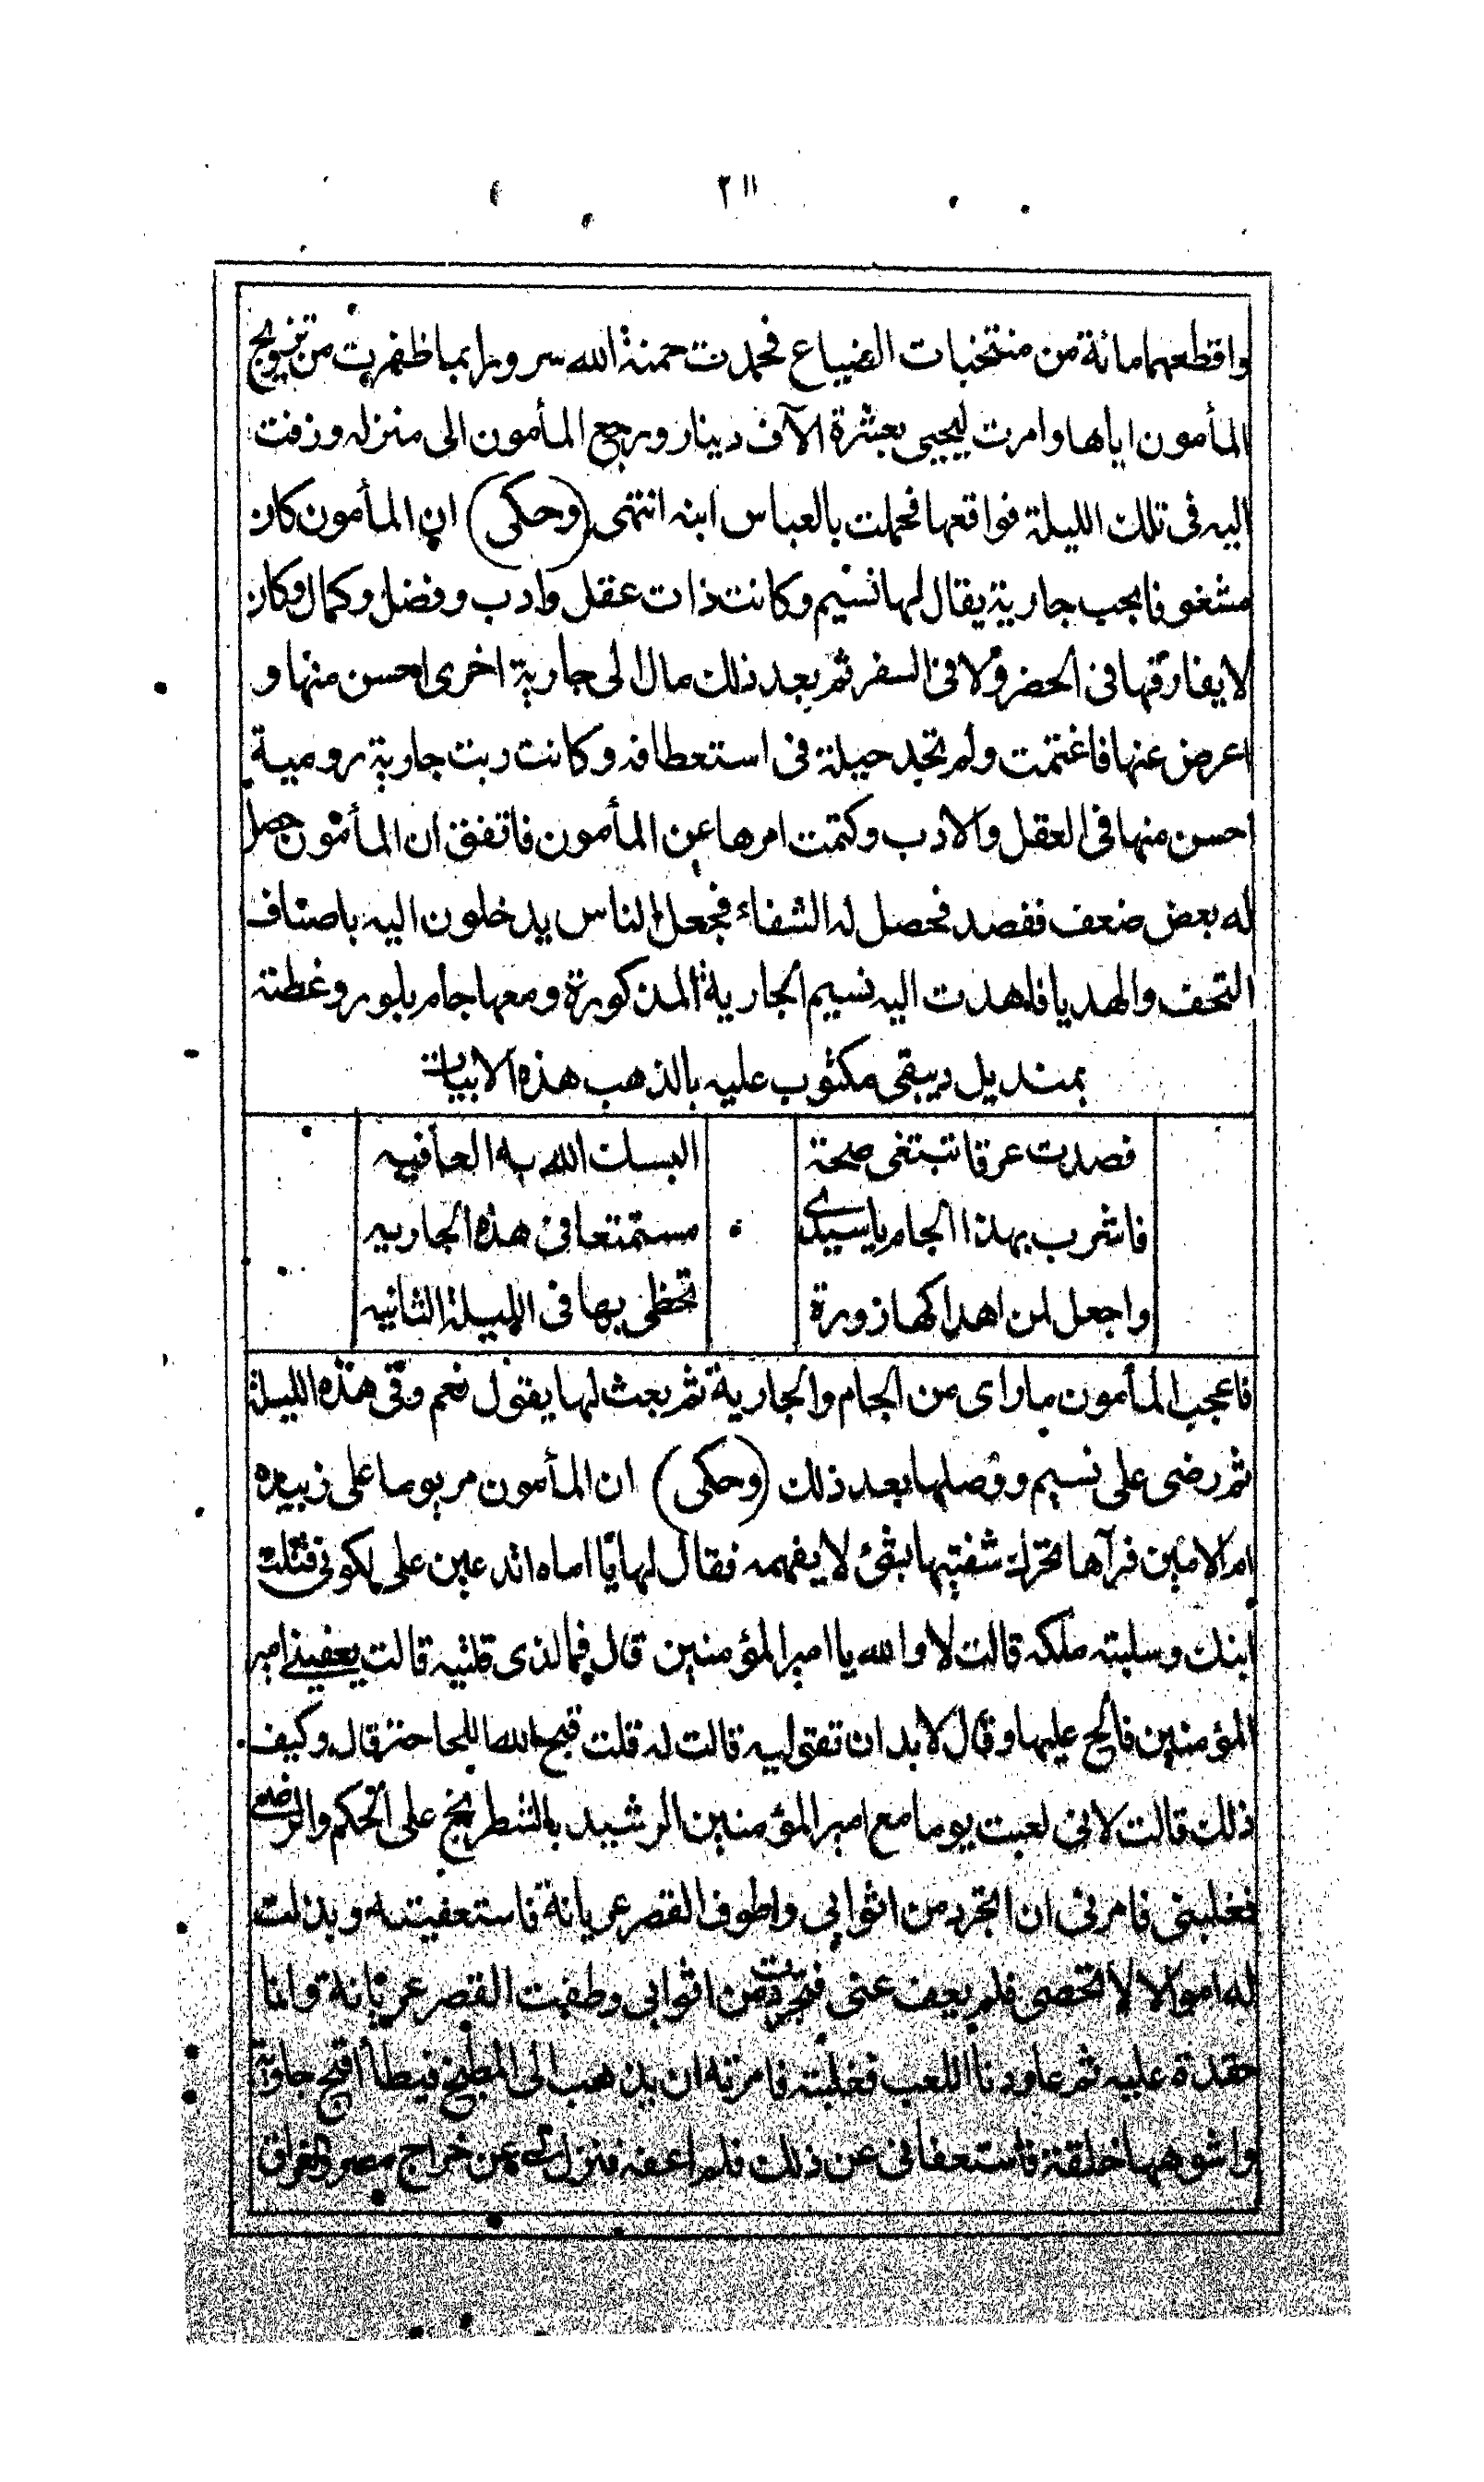 ٢١١
واقطعهما مائة من منتخبات الضياع فحمدت حمنة الله سرورا بما ظفرت من تزويج
المأمون اياها وامرت ليحيى بعشرة الآف دينار ورجع المأمون الى منزله وزفت
اليه فى تلك الليلة فواقعها فحملت بالعباس ابنه انتهى (وحكى) ان المأمون كان
مشغوفا بحب جارية يقال لها نسيم وكانت ذات عقل وادب وفضل وكمال وكان
لا يفارقها فى الحضر ولا فى السفر ثم بعد ذلك مال الى جارية اخرى احسن منها و
اعرض عنها فاغتمت ولم تجد حيلة فى استعطافه وكانت ربت جارية رومية
احسن منها فى العقل والادب وكتمت امرها عن المأمون فاتفق ان المأمون حصل
له بعض ضعف ففصد فحصل له الشفاء فجعل الناس يدخلون اليه باصناف
التحف والهديا فاهدت اليه نسيم الجارية المذكورة ومعها جام بلور وغطته
بمنديل دبيقى مكتوب عليه بالذهب هذه الابيات
فصدت عرقا تبتغى صحة البسك الله به العافيه
فاشرب بهذا الجام يا سيدى مستمتعا فى هذه الجاريه
واجعل لمن اهداكها زورة تحظى بها فى الليلة الثانيه
فاعجب المأمون ما راى من الجام والجارية ثم بعث لها يقول نعم وفى هذه الليلة
ثم رضى على نسيم ووصلها بعد ذلك (وحكى) ان المأمون مر يوما على زبيده
ام الامين فرآها تحرك شفتيها بشئ لا يفهمه فقال لها يا اماه اتدعين على لكونى قتلت
ابنك وسلبته ملكه قالت لا والله يا امير المؤمنين قال فما الذى قلتيه قالت يعفينى امير
المؤمنين فالح عليها وقال لا بد ان تقوليه قالت له قلت قبح الله الملحاحة قال وكيف
ذلك قالت لانى لعبت يوما مع امير المؤمنين الرشيد بالشطرنج على الحكم والرضى
فغلبنى فامرنى ان اتجرد من اثوابى واطوف القصر عريانة فاستعفيته وبذلت
له اموالا لا تحصى فلم يعف عنى فتجردت من اثوابى وطفت القصر عريانة وانا
حقدة عليه ثم عاودنا اللعب فغلبته فامرته ان يذهب الى المطبخ فيطأ اقبح جارية
واشوهها خلقة فاستعفانى عن ذلك فلم اعفه فنزل لى عن خراج مصر والعراق